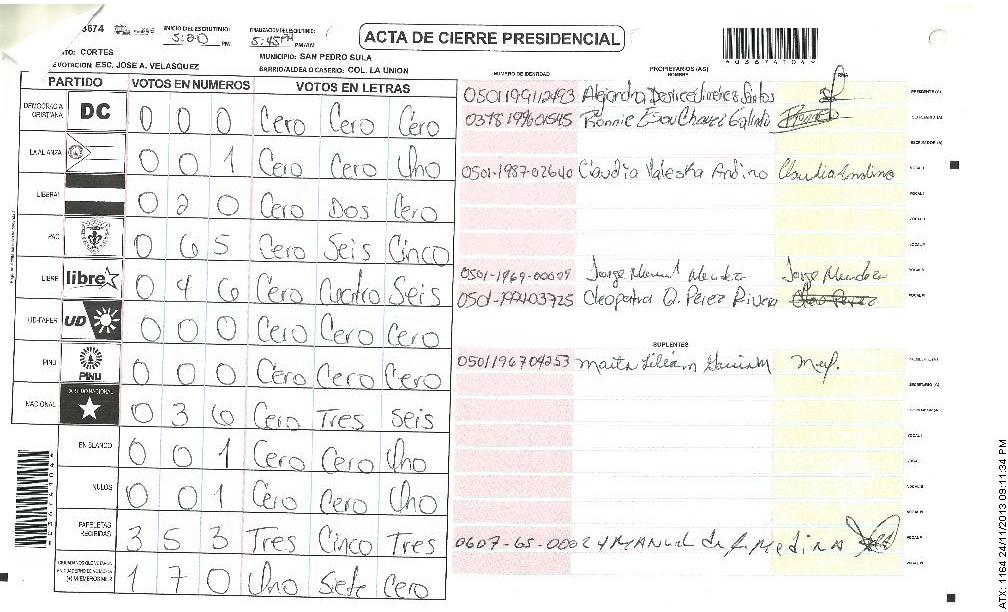 3674
INICIO DEL ESCRUTINIO: 5:20 PM
FINALIZACION DEL ESCRUTINIO: 5:45PM PM/AM
ACTA DE CIERRE PRESIDENCIAL
TO: CORTES
MUNICIPIO: SAN PEDRO SULA
VOTACION: ESC. JOSE A. VELASQUEZ
BARRIO/ALDEA O CASERIO: COL. LA UNION
PARTIDO VOTOS EN NUMEROS VOTOS EN LETRAS
NUMERO DE IDENTIDAD PROPIETARIOS (AS) NOMBRE FIRMA
DEMOCRACIA CRISTIANA DC 0 0 0 Cero Cero Cero
LA ALIANZA 0 0 1 Cero Cero Uno
LIBERAL 0 2 0 Cero Dos Cero
PAC 0 6 5 Cero Seis Cinco
LIBRE libre 0 4 6 Cero Cuatro Seis
UD-FAPER UD 0 0 0 Cero Cero Cero
PINU PINU 0 0 0 Cero Cero Cero
NACIONAL PARTIDO NACIONAL 0 3 6 Cero Tres Seis
EN BLANCO 0 0 1 Cero Cero Uno
NULOS 0 0 1 Cero Cero Uno
PAPELETAS RECIBIDAS 3 5 3 Tres Cinco Tres
1 7 0 Uno Siete Cero
PRESIDENTE (A)
SECRETARIO (A)
0501-1987-02640 Claudia Valeska Andino Claudia Andino
0501-1969-00009 Jorge Manuel Mendez Jorge Mendez
Cleopatra O. Perez Rivera
SUPLENTES
0501196704253
0607-65-00024 Manuel de J. Medina
ATX: 1164-24/11/2013 09:11:34 PM